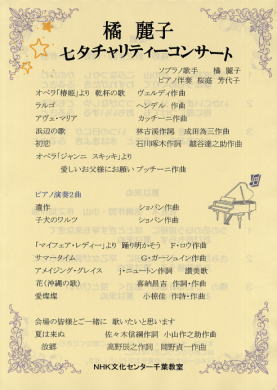 橘 麗子
七夕チャリティーコンサート
ソプラノ歌手 橘 麗子
ピアノ伴奏 桜庭 芳代子
オペラ「椿姫」より 乾杯の歌 ヴェルディ作曲
ラルゴ ヘンデル 作曲
アヴェ・マリア カッチーニ作曲
浜辺の歌 林古溪作詞 成田為三作曲
初恋 石川啄木作詞 越谷達之助作曲
オペラ「ジャンニ スキッキ」より
愛しいお父様にお願い プッチーニ作曲
ピアノ演奏2曲
遺作 ショパン作曲
子犬のワルツ ショパン作曲
「マイフェア・レディー」より 踊り明かそう F・ロウ作曲
サマータイム G・ガーシュイン作曲
アメイジング・グレイス j・ニュートン作詞 讃美歌
花(沖縄の歌) 喜納昌吉 作詞・作曲
愛燦燦 小椋佳 作詩・作曲
会場の皆様とご一緒に 歌いたいと思います
夏は来ぬ 佐々木信綱作詞 小山作之助作曲
故郷 高野辰之作詞 岡野貞一作曲
NHK文化センター千葉教室